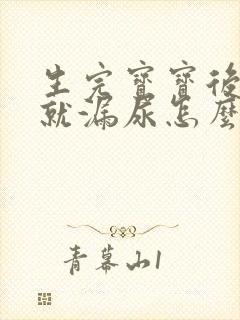 生完寶寶後
就漏尿怎麼
青幕山1